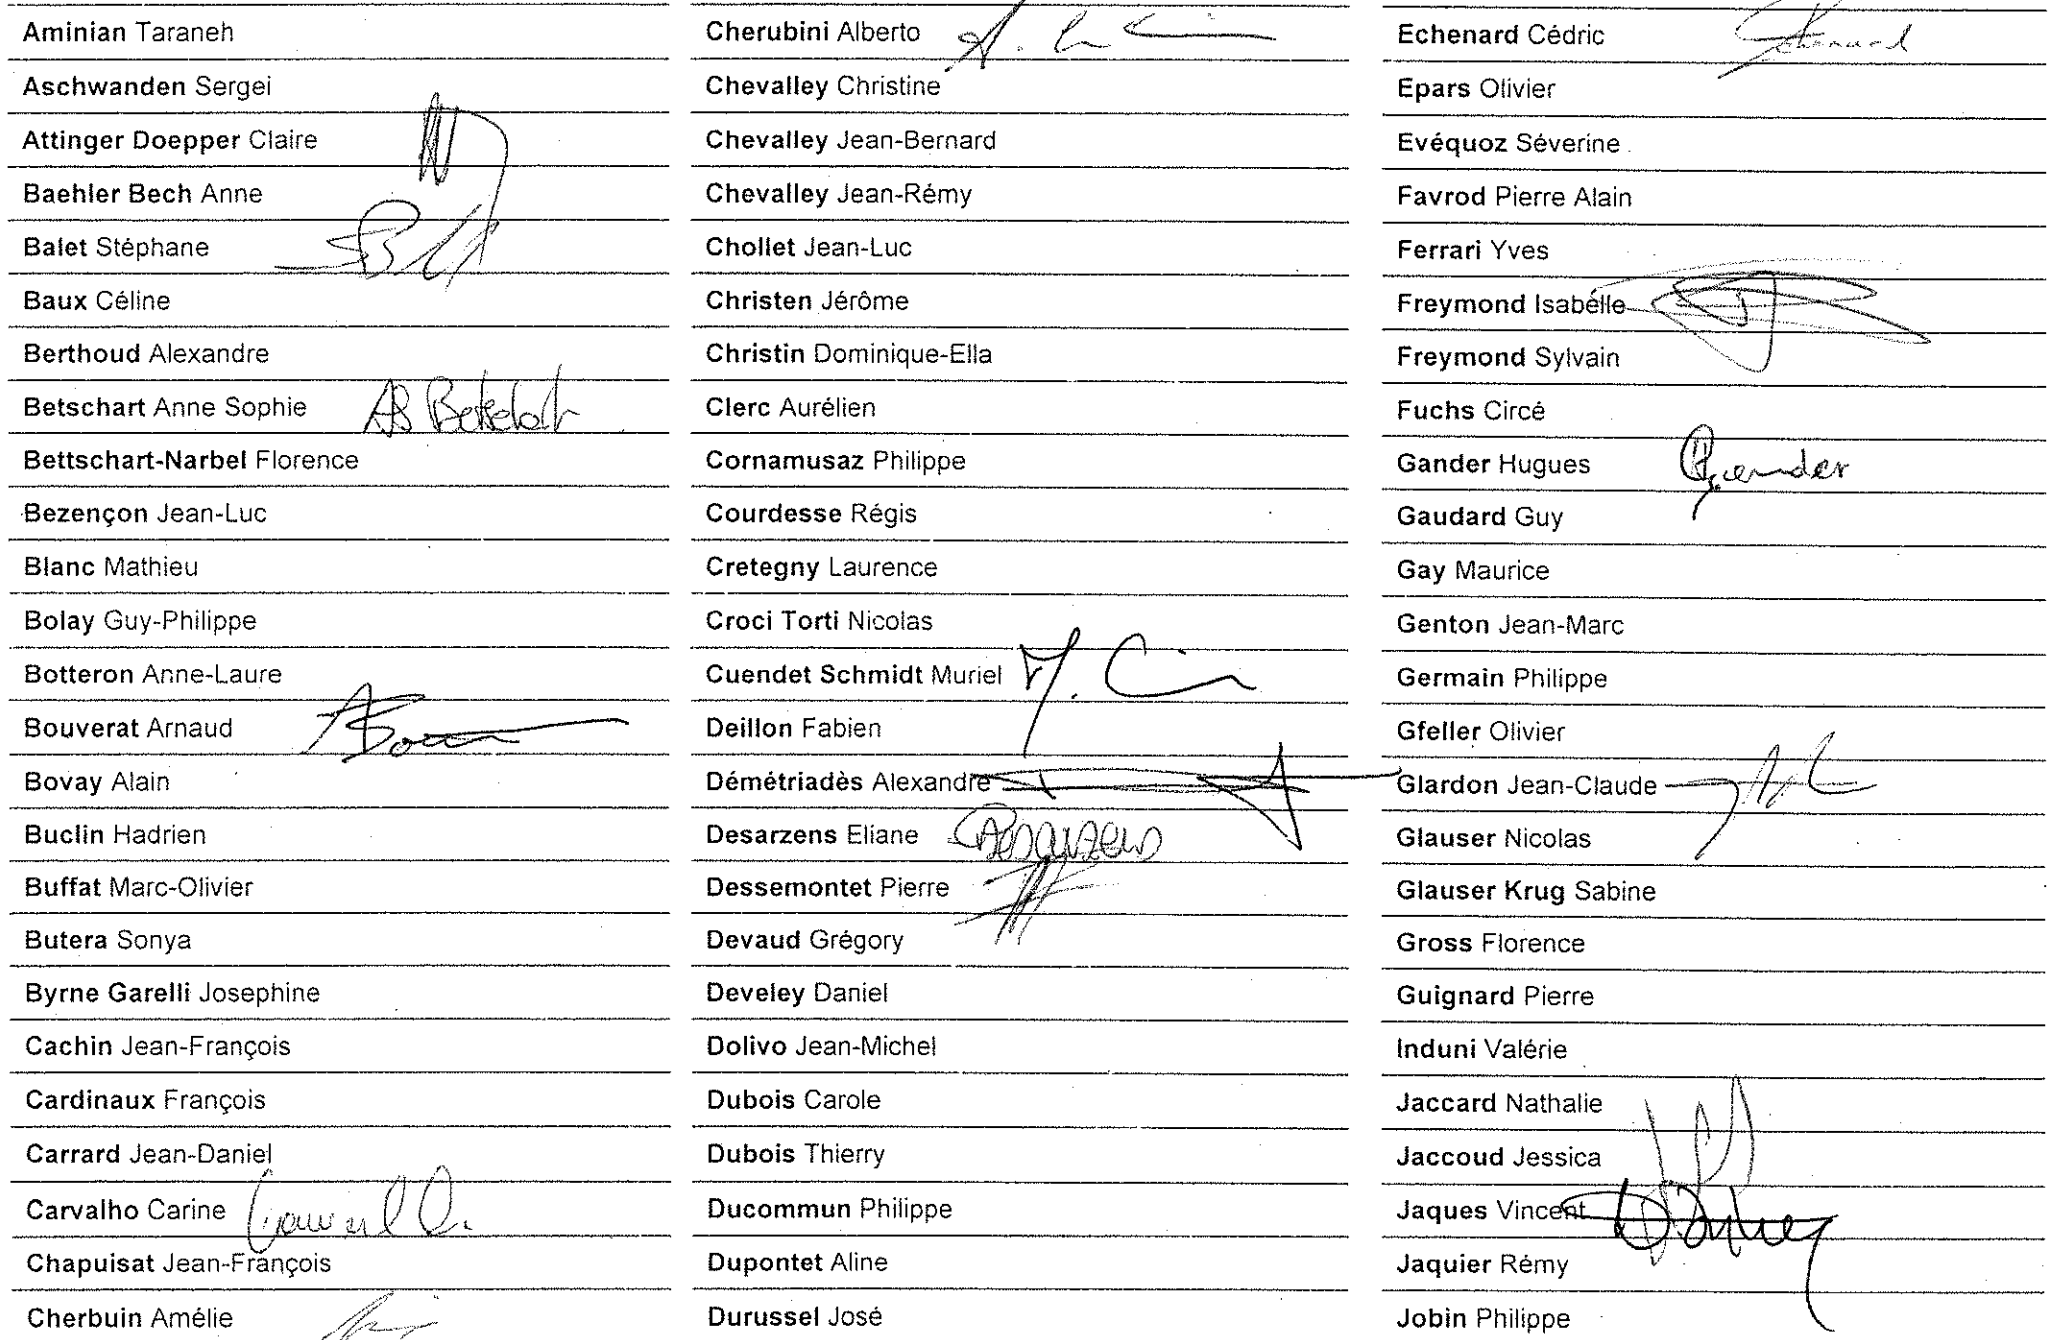 Aminian Taraneh
Aschwanden Sergei
Attinger Doepper Claire
Baehler Bech Anne
Balet Stéphane
Baux Céline
Berthoud Alexandre
Betschart Anne Sophie AS Betschart
Bettschart-Narbel Florence
Bezençon Jean-Luc
Blanc Mathieu
Bolay Guy-Philippe
Botteron Anne-Laure
Bouverat Arnaud
Bovay Alain
Buclin Hadrien
Buffat Marc-Olivier
Butera Sonya
Byrne Garelli Josephine
Cachin Jean-François
Cardinaux François
Carrard Jean-Daniel
Carvalho Carine
Chapuisat Jean-François
Cherbuin Amélie
Cherubini Alberto
Chevalley Christine
Chevalley Jean-Bernard
Chevalley Jean-Rémy
Chollet Jean-Luc
Christen Jérôme
Christin Dominique-Ella
Clerc Aurélien
Cornamusaz Philippe
Courdesse Régis
Cretegny Laurence
Croci Torti Nicolas
Cuendet Schmidt Muriel
Deillon Fabien
Démétriadès Alexandre
Desarzens Eliane Desarzens
Dessemontet Pierre
Devaud Grégory
Develey Daniel
Dolivo Jean-Michel
Dubois Carole
Dubois Thierry
Ducommun Philippe
Dupontet Aline
Durussel José
Echenard Cédric Echenard
Epars Olivier
Evéquoz Séverine
Favrod Pierre Alain
Ferrari Yves
Freymond Isabelle
Freymond Sylvain
Fuchs Circé
Gander Hugues Gander
Gaudard Guy
Gay Maurice
Genton Jean-Marc
Germain Philippe
Gfeller Olivier
Glardon Jean-Claude
Glauser Nicolas
Glauser Krug Sabine
Gross Florence
Guignard Pierre
Induni Valérie
Jaccard Nathalie
Jaccoud Jessica
Jaques Vincent
Jaquier Rémy
Jobin Philippe